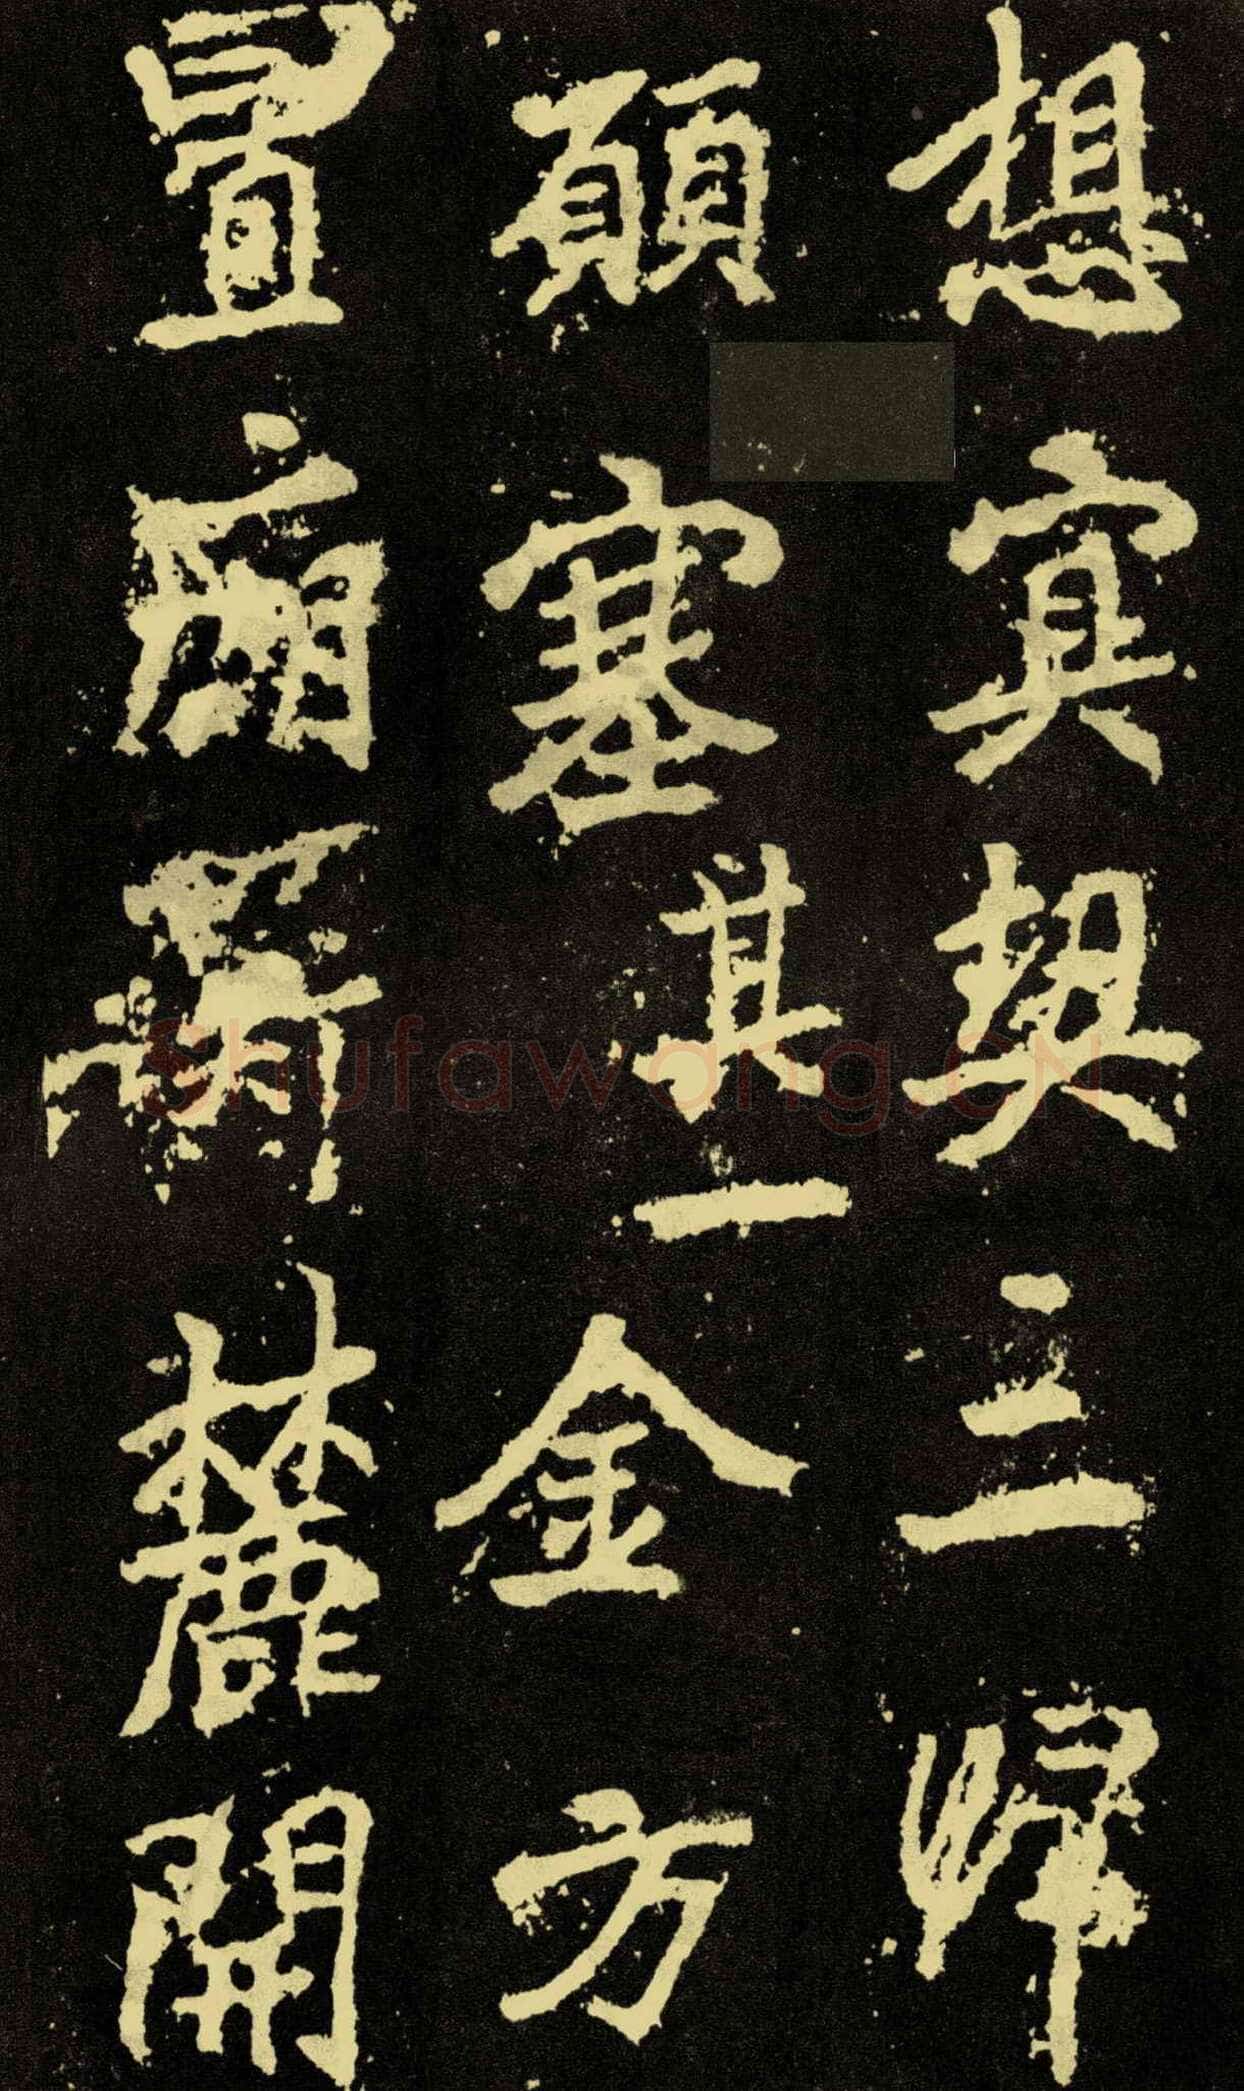 想㝠契三歸
願塞其一金方
置廟麓開
Shufawang.CN